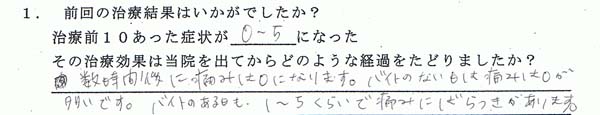 1. 前回の治療結果はいかがでしたか？
治療前10あった症状が 0~5 になった
その治療効果は当院を出てからどのような経過をたどりましたか？
数時間後に痛みは0になります。バイトのない日は痛みは0が
多いです。バイトのある日も、1~5くらいで痛みにばらつきがあります